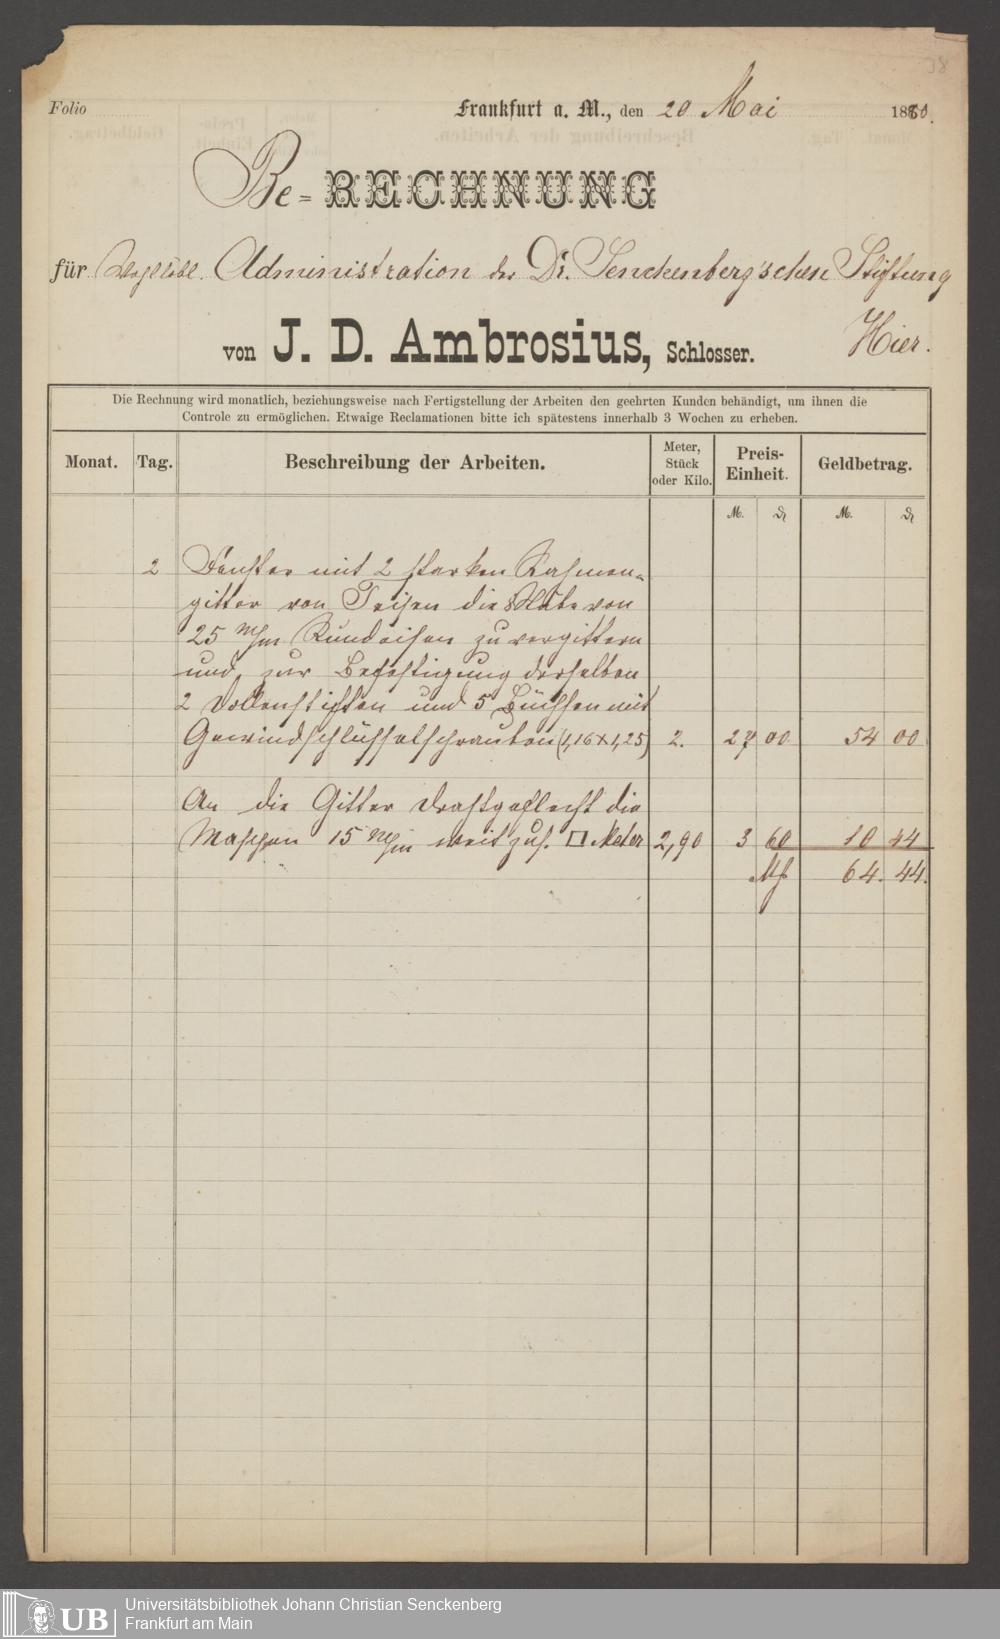 38
Folio Frankfurt a. M., den 20 Mai 1880.
Be=RECHNUNG
für Wohllöbl. Administration der Dr. Senckenberg'schen Stiftung
von J. D. Ambrosius, Schlosser. Hier.
Die Rechnung wird monatlich, beziehungsweise nach Fertigstellung der Arbeiten den geehrten Kunden behändigt, um ihnen die
Controle zu ermöglichen. Etwaige Reclamationen bitte ich spätestens innerhalb 3 Wochen zu erheben.
Monat. Tag. Beschreibung der Arbeiten. Meter, Stück oder Kilo. Preis-Einheit. Geldbetrag.
M. ₰ M. ₰
2 Fenster mit 2 starken Rahmen-
gitter von Teisen die Stäbe von
25 m/m Rundeisen zu vergittern
und zur Befestigung derselben
2 Dollenstiften und 5 Büchsen mit
Gewindschlüsselschrauben (1,16 x 1,25) 2. 27 00 54 00
An die Gitter Drahtgeflecht die
Maschen 15 m/m weit zus. □ Meter 2,90 3 60 10 44
Mf 64. 44.
UB Universitätsbibliothek Johann Christian Senckenberg
Frankfurt am Main